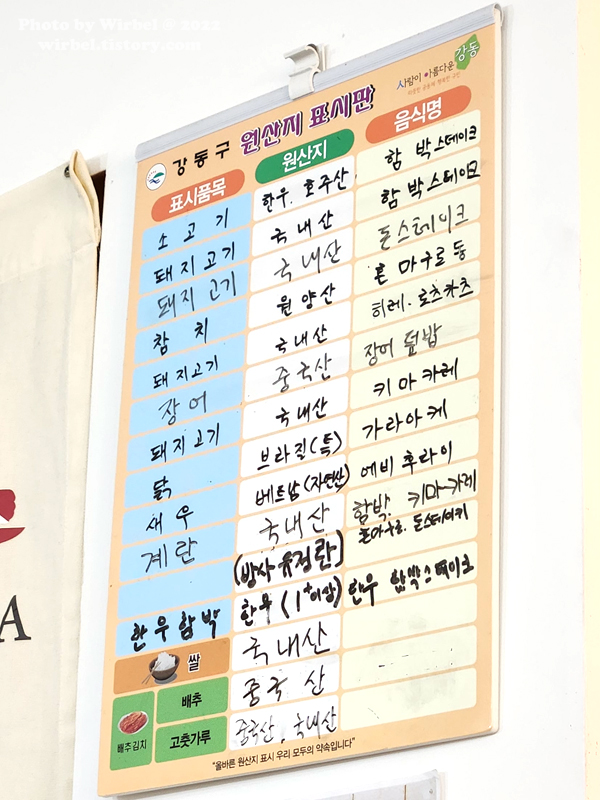 Photo by Wirbel © 2022
wirbel.tistory.com
사람이 아름다운 강동
강동구 원산지 표시판
표시품목 원산지 음식명
소고기 한우. 호주산 함박스테이크
돼지고기 국내산 함박스테이크
돼지고기 국내산 돈스테이크
참치 원양산 혼마구로동
돼지고기 국내산 히레.로츠카츠
장어 중국산 장어덮밥
돼지고기 국내산 키마카레
닭 브라질(특) 가라아게
새우 베트남(자연산) 에비후라이
계란 국내산 함박. 키마카레
(방사유정란) 돈스테이키
한우함박 한우(1+이상) 한우 함박스테이크
쌀 국내산
배추김치 배추 중국산
고춧가루 중국산, 국내산
"올바른 원산지 표시 우리 모두의 약속입니다"
A